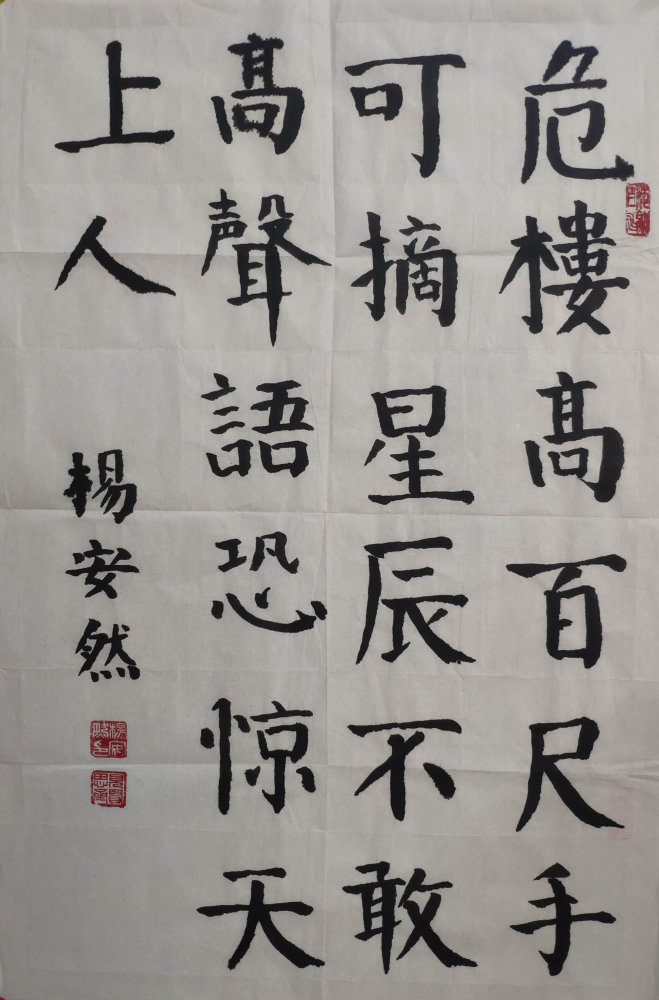 危樓髙百尺手
可摘星辰不敢
髙聲語恐惊天
上人
楊安然